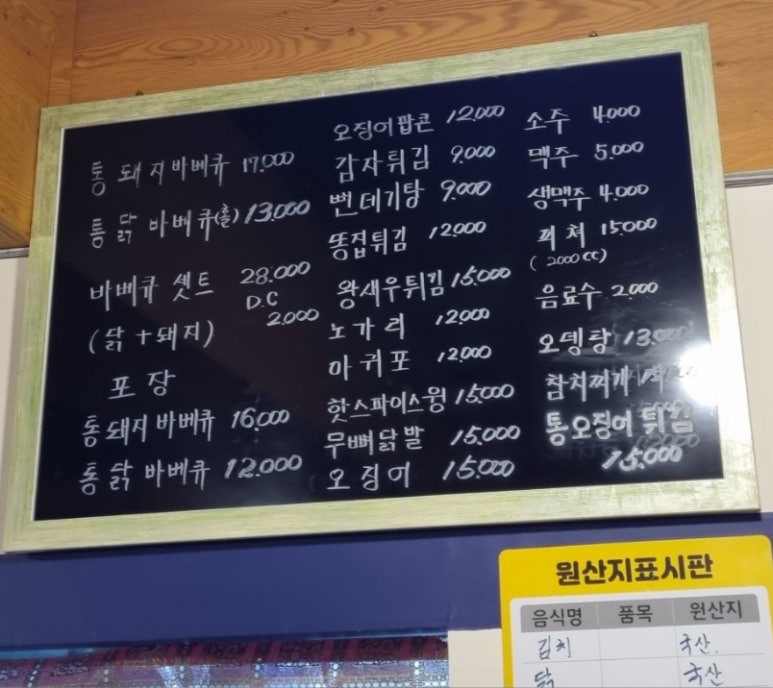 통 돼지바베큐 17,000
통 닭 바베큐(홀) 13,000
바베큐 셋트 28.000
D.C
2.000
(닭 + 돼지)
포 장
통돼지 바베큐 16,000
통 닭 바베큐 12.000
오징어팝콘 12,000
감자튀김 9,000
뻔데기탕 9,000
똥집튀김 12,000
왕새우튀김 15,000
노가리 12,000
아귀포 12,000
핫스파이스윙 15,000
무뼈닭발 15,000
오징어 15.000
소주 4,000
맥주 5,000
생맥주 4.000
피쳐 15,000
(2000cc)
음료수 2,000
오뎅탕 13,000
참치찌개
통오징어 튀김
15.000
원산지표시판
음식명 품목 원산지
김치 국산.
닭 국산